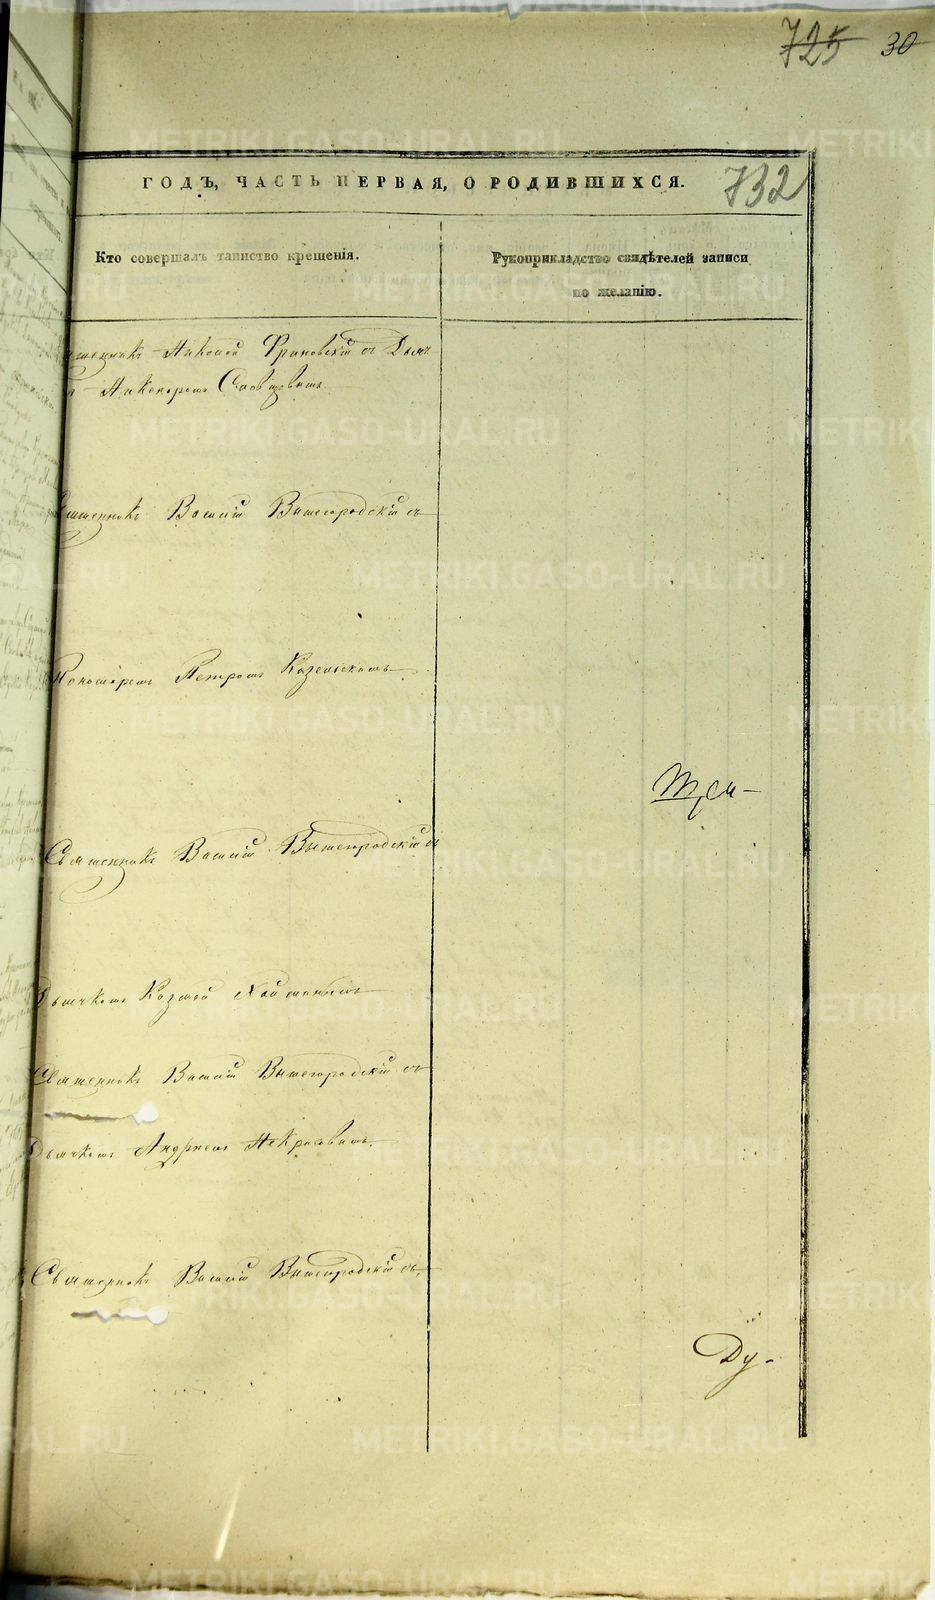 725 30
ГОДЪ, ЧАСТЬ ПЕРВАЯ, О РОДИВШИХСЯ. 732
Кто совершалъ таинство крещенія.
Рукоприкладство свидѣтелей записи
по желанію.
Николай съ Дьяч
Никаноромъ
Василій Вышегородскій съ
Пономаремъ Петромъ Козельскомъ
Священникъ Василій Вышегородскій съ
Дьячкомъ Козмой
Священникъ Василій Вышегородскій съ
Дьячкомъ Андреемъ Некрасовымъ
Священникъ Василій Вышегородскій съ
Ду-
METRIKI.GASO-URAL.RU